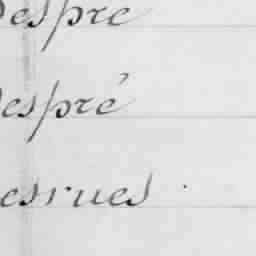 Despre
Despré
esrues .